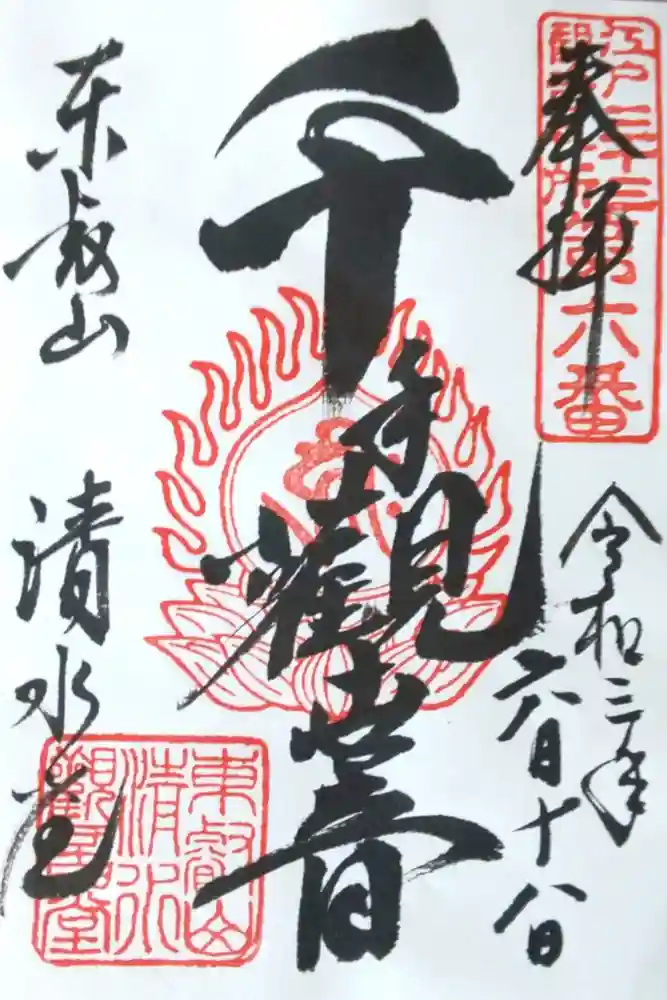 奉拝
江戸三十三
觀音札所
第六番
令和三年
六月十八日
千手觀世音
東叡山
清水堂
東叡山
清水
觀音堂